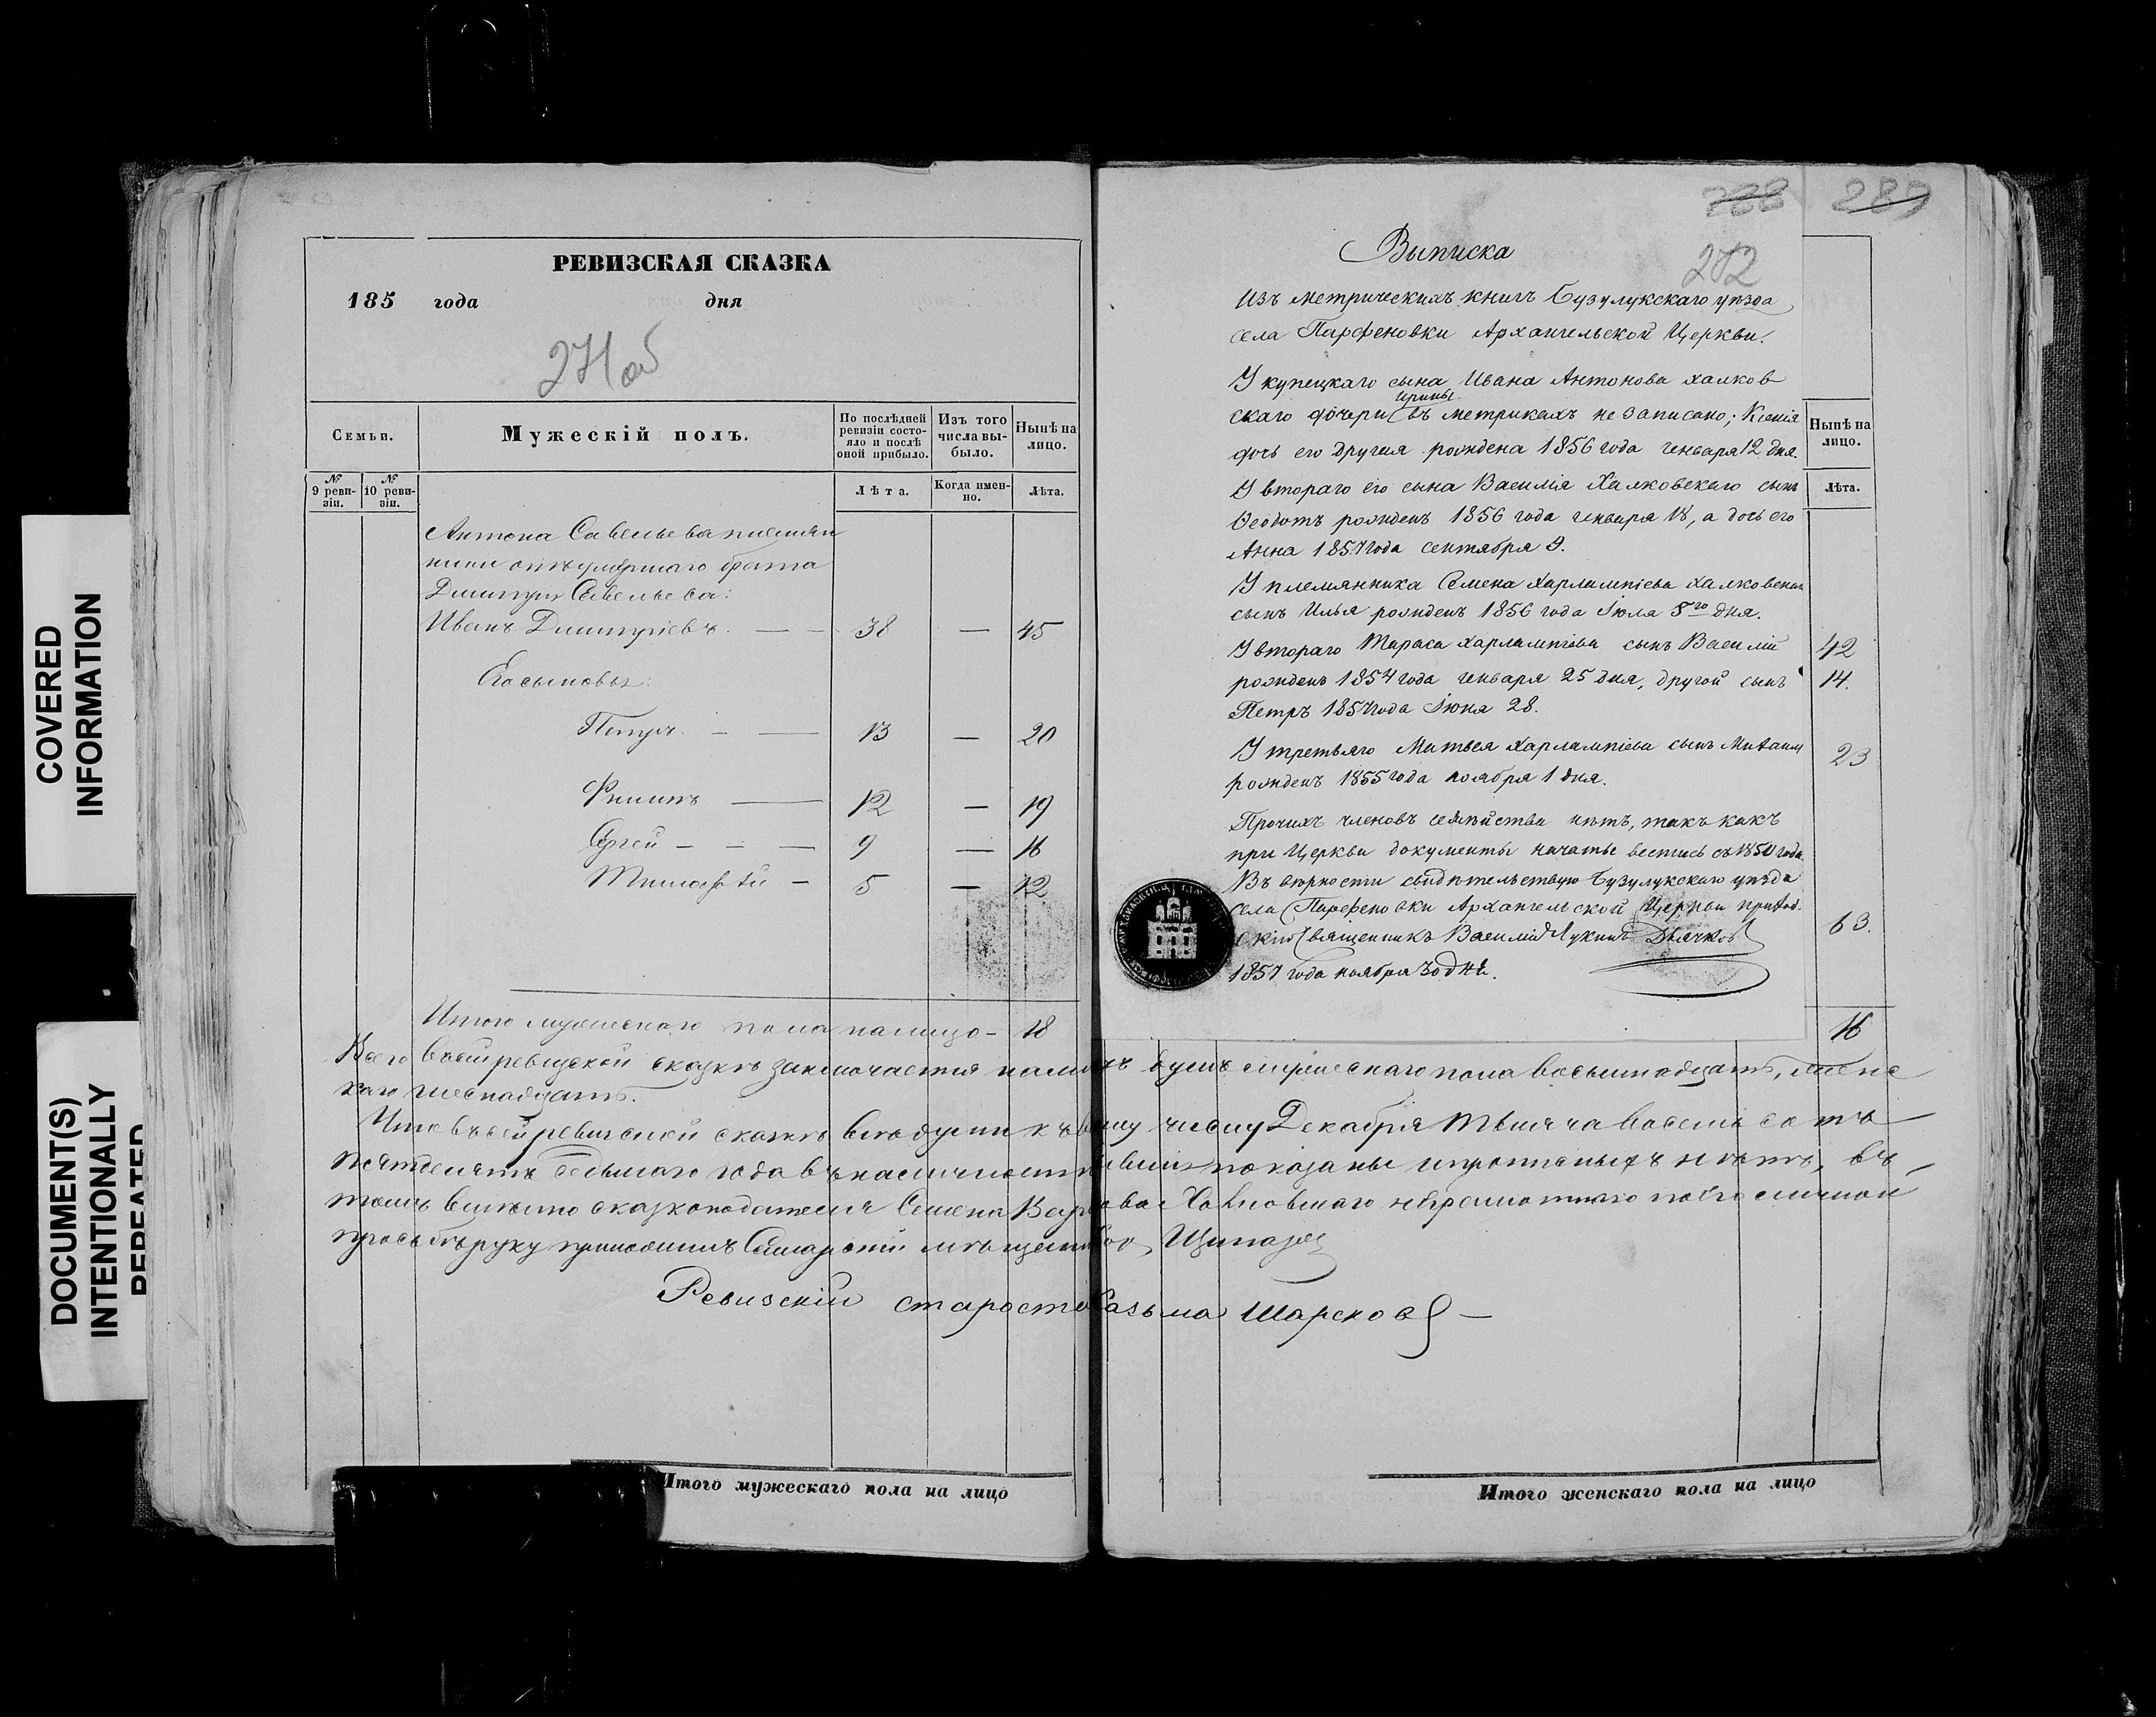 COVERED
INFORMATION
DOCUMENT(S)
INTENTIONALLY
REPEATED
РЕВИЗСКАЯ СКАЗКА
185 года дня
271 об
Семьи.
Мужескій полъ.
По послѣдней ревизіи состояло и послѣ оной прибыло.
Изъ того числа выбыло.
Нынѣ на лицо.
№ 9 ревизіи.
№ 10 ревизіи.
Лѣта.
Когда именно.
Лѣта.
Антона Савельева племян
ники отъ умершаго брата
Дмитрія Савельева:
Иванъ Дмитріевъ. — 38 — 45
Его сыновья:
Петръ — 13 — 20
Филипъ — 12 — 19
Сергей — 9 — 16
Тимофѣй — 5 — 12
Итого мужескаго пола налицо — 18
288
289
272
Выписка
Изъ метрическихъ книгъ Бузулукскаго уѣзда
села Парфеновки Архангельской Церкви.
У купецкаго сына Ивана Антонова Халков
скаго дочери Ирины въ метрикахъ не записано; Ксенія
дочь его другая рождена 1856 года генваря 12 дня.
У втораго его сына Василія Халковскаго сынъ
Ѳеодотъ рожденъ 1856 года генваря 18, а дочь его
Анна 1857 года сентября 9.
У племянника Семена Харлампіева Халковскаго
сынъ Илья рожденъ 1856 года Іюля 8го дня.
У втораго Тараса Харлампіева сынъ Василій
рожденъ 1854 года генваря 25 дня, другой сынъ
Петръ 1857 года Іюня 28.
У третьяго Матвея Харлампіева сынъ Михаилъ
рожденъ 1855 года ноября 1 дня.
Прочихъ членовъ семейства нѣтъ, такъ какъ
при Церкви документы начаты вестись съ 1850 года.
Въ верности свидѣтельствую Бузулукскаго уѣзда
села Парфеновки Архангельской Церкви приход-
скій Священникъ Василій Лукинъ Дьячков
1857 года ноября 30 дня.
Нынѣ на лицо.
Лѣта.
42
14.
23
63.
16
Всего въ сей ревизской сказкѣ заключается налицо душъ мужескаго пола восымнадцать, женс
каго шеснадцать.
Что въ сей ревизской сказкѣ все души къ числу Декабря тысяча восемь сотъ
пятдесятъ седьмаго года въ наличности показаны и прописныхъ нѣтъ, въ
томъ вместо сказкоподателя Семена Халковскаго неграмотнаго по его личной
просьбѣ руку приложилъ Самарскій мѣщанинъ
Ревизскій староста Козьма Шарсков —
Итого мужескаго пола на лицо
Итого женскаго пола на лицо